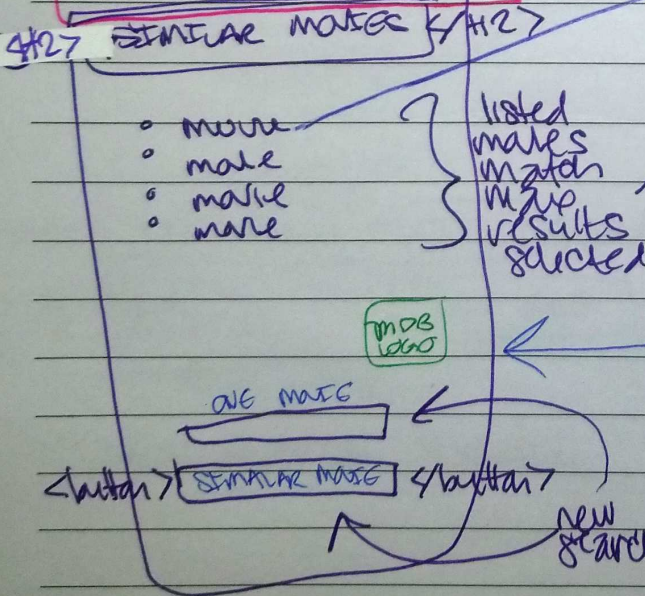 <H2> SIMILAR MOVIES </H2>
movie
movie
movie
movie
listed
movies
match
movie
results
selected
MDB
LOGO
ONE MOVIE
<button> SIMALAR MOVIE </button>
new